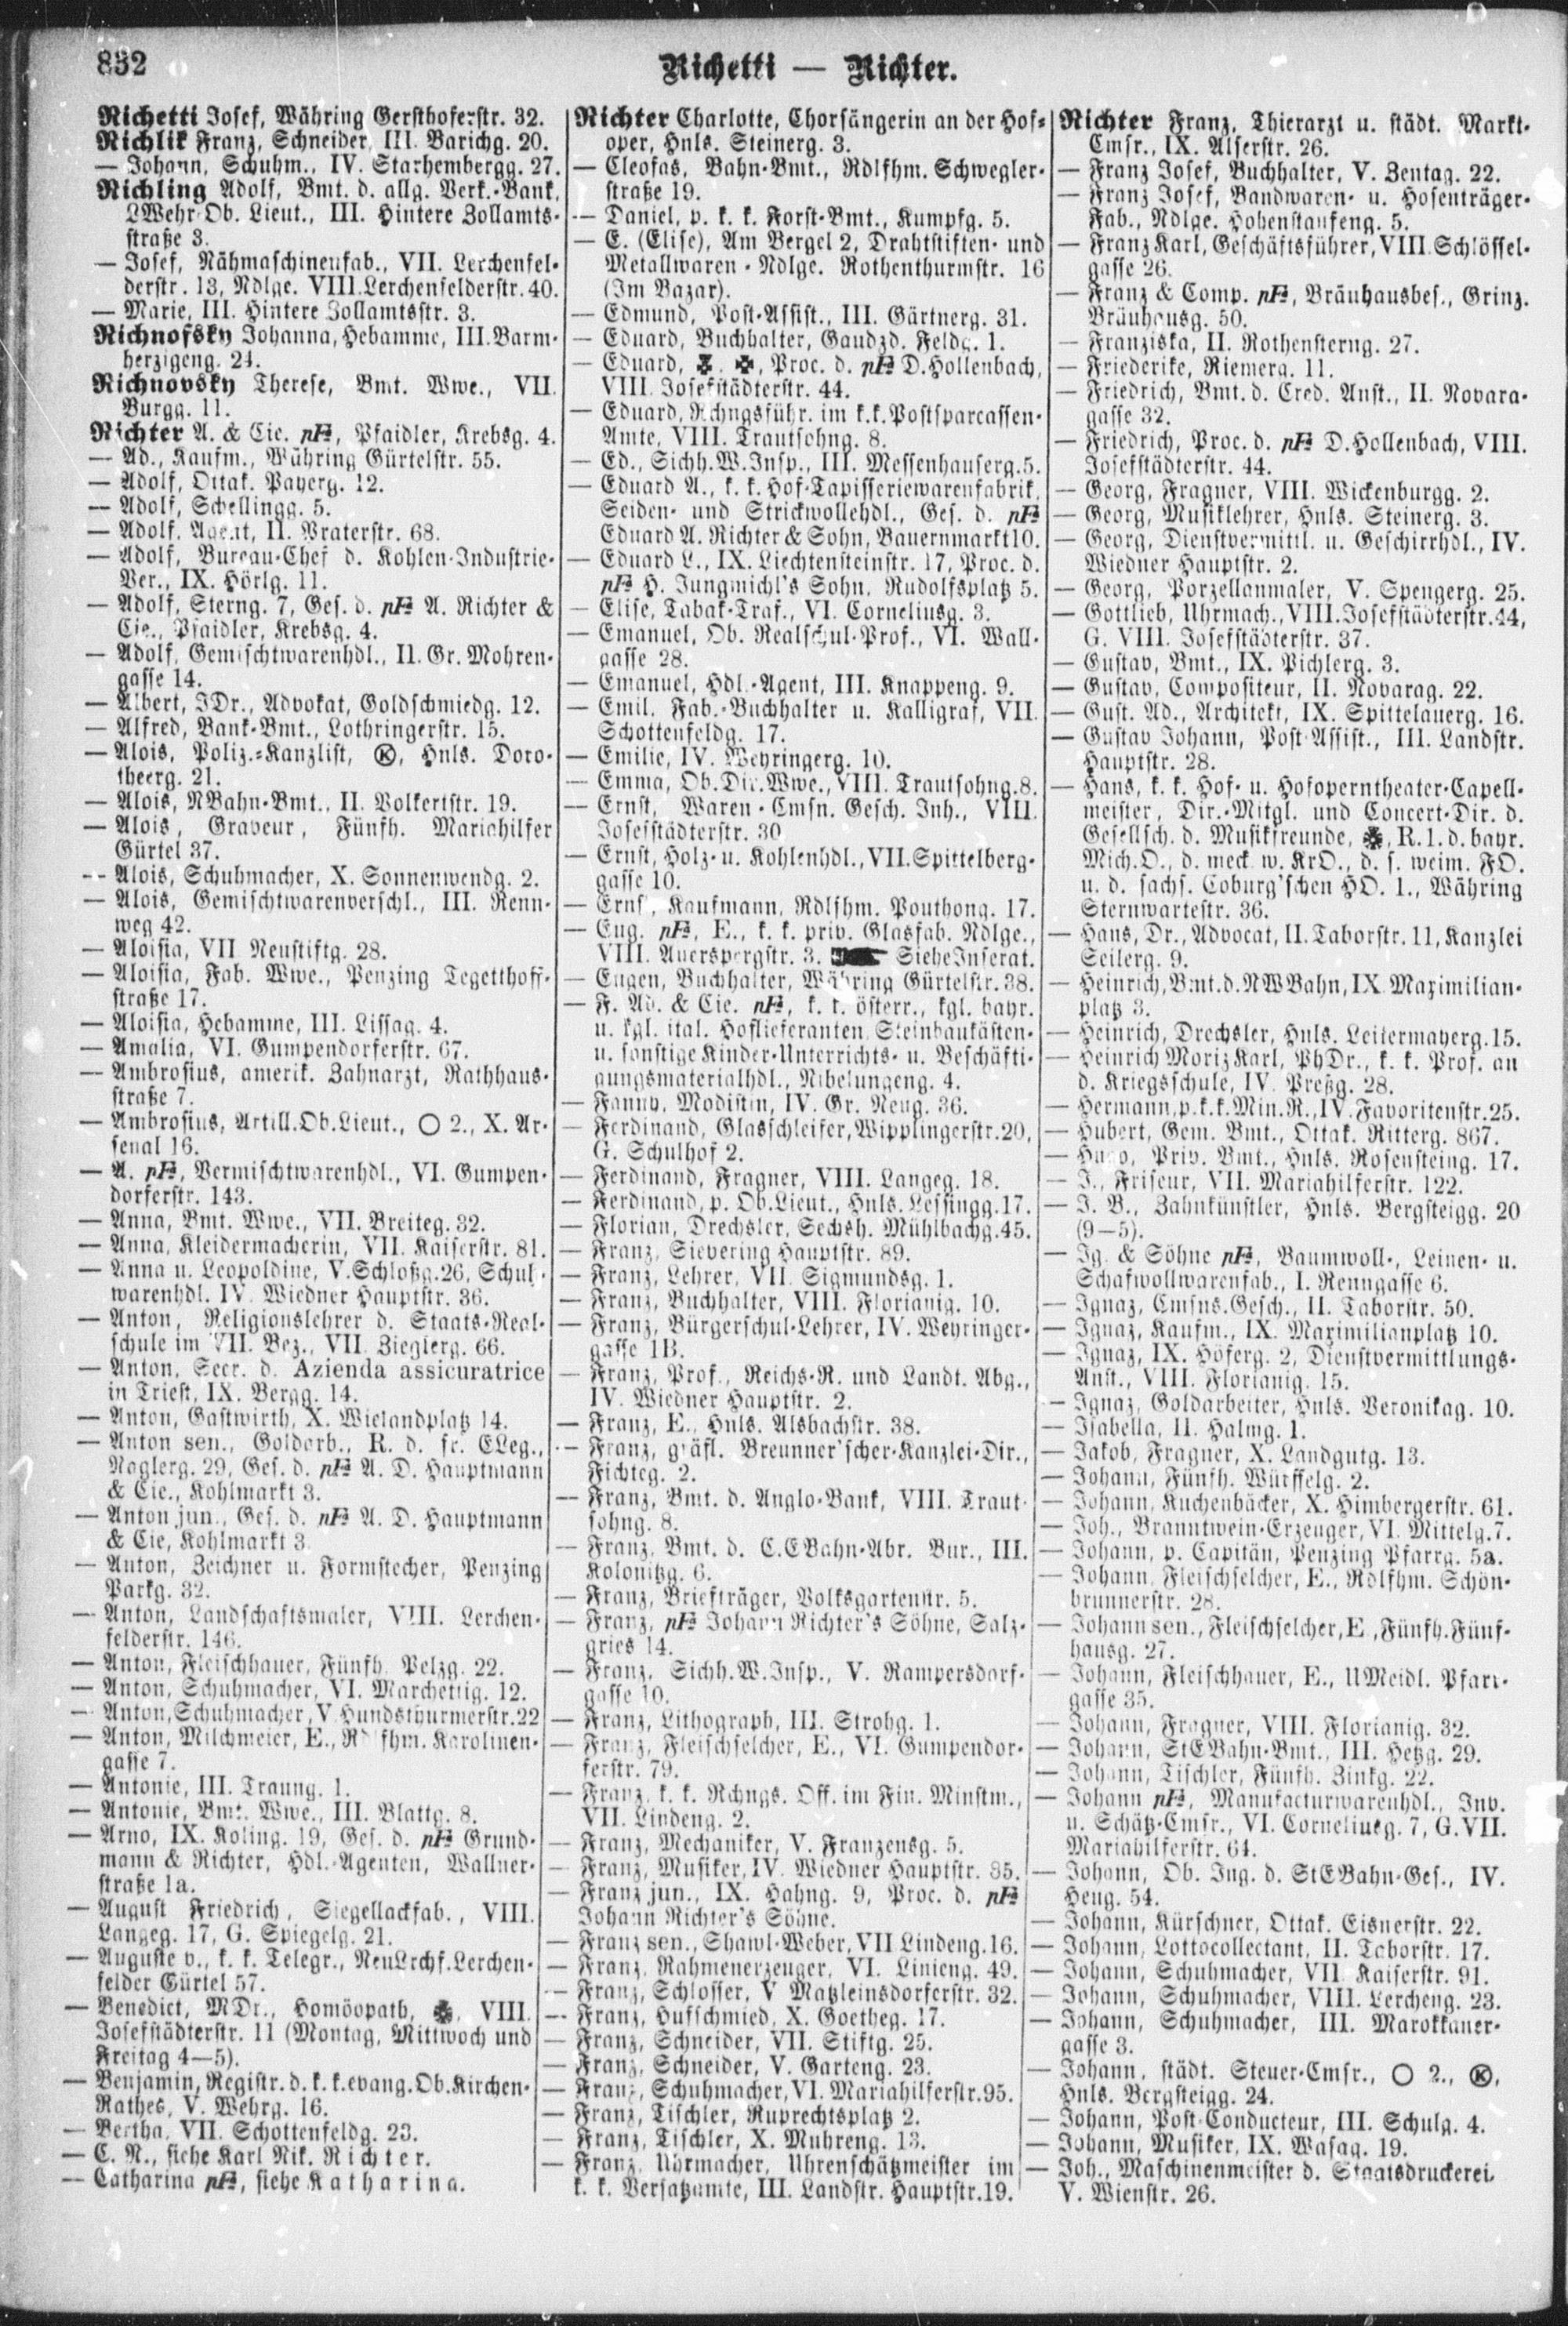 832
Richetti — Richter.
Richetti Josef, Währing Gersthoferstr. 32.
Richlik Franz, Schneider, III. Barichg. 20.
— Johann, Schuhm., IV. Starhembergg. 27.
Richling Adolf, Bmt. d. allg. Verk.-Bank,
LWehr-Ob. Lieut., III. Hintere Zollamts-
straße 3.
— Josef, Nähmaschinenfab., VII. Lerchenfel-
derstr. 13, Ndlge. VIII. Lerchenfelderstr. 40.
— Marie, III. Hintere Zollamtsstr. 3.
Richnofsky Johanna, Hebamme, III. Barm-
herzigeng. 24.
Richnovsky Therese, Bmt. Wwe., VII.
Burgg. 11.
Richter A. & Cie. pFa, Pfaidler, Krebsg. 4.
— Ad., Kaufm., Währing Gürtelstr. 55.
— Adolf, Ottak. Payerg. 12.
— Adolf, Schellingg. 5.
— Adolf, Agent, II. Praterstr. 68.
— Adolf, Bureau-Chef d. Kohlen-Industrie-
Ver., IX. Hörlg. 11.
— Adolf, Sterng. 7, Ges. d. pFa A. Richter &
Cie., Pfaidler, Krebsg. 4.
— Adolf, Gemischtwarenhdl., II. Gr. Mohren-
gasse 14.
— Albert, JDr., Advokat, Goldschmiedg. 12.
— Alfred, Bank-Bmt., Lothringerstr. 15.
— Alois, Poliz.-Kanzlist, Ⓚ, Hnls. Doro-
theerg. 21.
— Alois, NBahn-Bmt., II. Volkertstr. 19.
— Alois, Graveur, Fünfh. Mariahilfer
Gürtel 37.
— Alois, Schuhmacher, X. Sonnenwendg. 2.
— Alois, Gemischtwarenverschl., III. Renn-
weg 42.
— Aloisia, VII. Neustiftg. 28.
— Aloisia, Fab. Wwe., Penzing Tegetthoff-
straße 17.
— Aloisia, Hebamme, III. Lissag. 4.
— Amalia, VI. Gumpendorferstr. 67.
— Ambrosius, amerik. Zahnarzt, Rathhaus-
straße 7.
— Ambrosius, Artill.Ob.Lieut., ○ 2., X. Ar-
senal 16.
— A. pFa, Vermischtwarenhdl., VI. Gumpen-
dorferstr. 143.
— Anna, Bmt. Wwe., VII. Breiteg. 32.
— Anna, Kleidermacherin, VII. Kaiserstr. 81.
— Anna u. Leopoldine, V. Schloßg. 26, Schul-
warenhdl. IV. Wiedner Hauptstr. 36.
— Anton, Religionslehrer d. Staats-Real-
schule im VII. Bez., VII. Zieglerg. 66.
— Anton, Secr. d. Azienda assicuratrice
in Triest, IX. Bergg. 14.
— Anton, Gastwirth, X. Wielandplatz 14.
— Anton sen., Goldarb., R. d. fr. ELeg.,
Naglerg. 29, Ges. d. pFa A. D. Hauptmann
& Cie., Kohlmarkt 3.
— Anton jun., Ges. d. pFa A. D. Hauptmann
& Cie, Kohlmarkt 3.
— Anton, Zeichner u. Formstecher, Penzing
Parkg. 32.
— Anton, Landschaftsmaler, VIII. Lerchen-
felderstr. 146.
— Anton, Fleischhauer, Fünfh. Pelzg. 22.
— Anton, Schuhmacher, VI. Marchettig. 12.
— Anton, Schuhmacher, V. Hundsthurmerstr. 22
— Anton, Milchmeier, E., Rdlfhm. Karolinen-
gasse 7.
— Antonie, III. Traung. 1.
— Antonie, Bmt. Wwe., III. Blattg. 8.
— Arno, IX. Koling. 19, Ges. d. pFa Grund-
mann & Richter, Hdl.-Agenten, Wallner-
straße 1a.
— August Friedrich, Siegellackfab., VIII.
Langeg. 17, G. Spiegelg. 21.
— Auguste v., k. k. Telegr., NeuLrchf. Lerchen-
felder Gürtel 57.
— Benedict, MDr., Homöopath, ✠, VIII.
Josefstädterstr. 11 (Montag, Mittwoch und
Freitag 4—5).
— Benjamin, Registr. d. k. k. evang. Ob. Kirchen-
Rathes, V. Wehrg. 16.
— Bertha, VII. Schottenfeldg. 23.
— C. N., siehe Karl Nik. Richter.
— Catharina pFa, siehe Katharina.
Richter Charlotte, Chorsängerin an der Hof-
oper, Hnls. Steinerg. 3.
— Cleofas, Bahn-Bmt., Rdlfhm. Schwegler-
straße 19.
— Daniel, p. k. k. Forst-Bmt., Kumpfg. 5.
— E. (Elise), Am Bergel 2, Drahtstiften- und
Metallwaren-Ndlge. Rothenthurmstr. 16
(Im Bazar).
— Edmund, Post-Assist., III. Gärtnerg. 31.
— Eduard, Buchhalter, Gaudzd. Feldg. 1.
— Eduard, ✠, ✠, Proc. d. pFa D. Hollenbach,
VIII. Josefstädterstr. 44.
— Eduard, Rchngsführ. im k.k. Postsparcassen-
Amte, VIII. Trautsohng. 8.
— Ed., Sichh.W.Insp., III. Messenhauserg. 5.
— Eduard A., k. k. Hof-Tapisseriewarenfabrik,
Seiden- und Strickwollehdl., Ges. d. pFa
Eduard A. Richter & Sohn, Bauernmarkt 10.
— Eduard L., IX. Liechtensteinstr. 17, Proc. d.
pFa H. Jungmichl's Sohn, Rudolfsplatz 5.
— Elise, Tabak-Traf., VI. Corneliusg. 3.
— Emanuel, Ob. Realschul-Prof., VI. Wall-
gasse 28.
— Emanuel, Hdl.-Agent, III. Knappeng. 9.
— Emil, Fab.-Buchhalter u. Kalligraf, VII.
Schottenfeldg. 17.
— Emilie, IV. Weyringerg. 10.
— Emma, Ob.Dir.Wwe., VIII. Trautsohng. 8.
— Ernst, Waren-Cmsn. Gesch. Inh., VIII.
Josefstädterstr. 30
— Ernst, Holz- u. Kohlenhdl., VII. Spittelberg-
gasse 10.
— Ernst, Kaufmann, Rdlfhm. Pouthong. 17.
— Eug. pFa, E., k. k. priv. Glasfab. Ndlge.,
VIII. Auerspergstr. 3. ☛ Siehe Inserat.
— Eugen, Buchhalter, Währing Gürtelstr. 38.
— F. Ad. & Cie. pFa, k. k. österr., kgl. bayr.
u. kgl. ital. Hoflieferanten, Steinbaukästen-
u. sonstige Kinder-Unterrichts- u. Beschäfti-
gungsmaterialhdl., Nibelungeng. 4.
— Fanny, Modistin, IV. Gr. Neug. 36.
— Ferdinand, Glasschleifer, Wipplingerstr. 20,
G. Schulhof 2.
— Ferdinand, Fragner, VIII. Langeg. 18.
— Ferdinand, p. Ob.Lieut., Hnls. Lessingg. 17.
— Florian, Drechsler, Sechsh. Mühlbachg. 45.
— Franz, Sievering Hauptstr. 89.
— Franz, Lehrer, VII. Sigmundsg. 1.
— Franz, Buchhalter, VIII. Florianig. 10.
— Franz, Bürgerschul-Lehrer, IV. Weyringer-
gasse 1B.
— Franz, Prof., Reichs-R. und Landt. Abg.,
IV. Wiedner Hauptstr. 2.
— Franz, E., Hnls. Alsbachstr. 38.
— Franz, gräfl. Breunner'scher-Kanzlei-Dir.,
Fichteg. 2.
— Franz, Bmt. d. Anglo-Bank, VIII. Traut-
sohng. 8.
— Franz, Bmt. d. C.EBahn-Abr. Bur., III.
Kolonitzg. 6.
— Franz, Briefträger, Volksgartenstr. 5.
— Franz, pFa Johann Richter's Söhne, Salz-
gries 14.
— Franz, Sichh.W.Insp., V. Rampersdorf-
gasse 10.
— Franz, Lithograph, III. Strohg. 1.
— Franz, Fleischselcher, E., VI. Gumpendor-
ferstr. 79.
— Franz, k. k. Rchngs. Off. im Fin. Minstm.,
VII. Lindeng. 2.
— Franz, Mechaniker, V. Franzensg. 5.
— Franz, Musiker, IV. Wiedner Hauptstr. 85.
— Franz jun., IX. Hahng. 9, Proc. d. pFa
Johann Richter's Söhne.
— Franz sen., Shawl-Weber, VII Lindeng. 16.
— Franz, Rahmenerzeuger, VI. Linieng. 49.
— Franz, Schlosser, V Matzleinsdorferstr. 32.
— Franz, Hufschmied, X. Goetheg. 17.
— Franz, Schneider, VII. Stiftg. 25.
— Franz, Schneider, V. Garteng. 23.
— Franz, Schuhmacher, VI. Mariahilferstr. 95.
— Franz, Tischler, Ruprechtsplatz 2.
— Franz, Tischler, X. Muhreng. 13.
— Franz, Uhrmacher, Uhrenschätzmeister im
k. k. Versatzamte, III. Landstr. Hauptstr. 19.
Richter Franz, Thierarzt u. städt. Markt-
Cmsr., IX. Alserstr. 26.
— Franz Josef, Buchhalter, V. Zentag. 22.
— Franz Josef, Bandwaren- u. Hosenträger-
Fab., Ndlge. Hohenstaufeng. 5.
— Franz Karl, Geschäftsführer, VIII. Schlössel-
gasse 26.
— Franz & Comp. pFa, Bräuhausbes., Grinz.
Bräuhausg. 50.
— Franziska, II. Rothensterng. 27.
— Friederike, Riemerg. 11.
— Friedrich, Bmt. d. Cred. Anst., II. Novara-
gasse 32.
— Friedrich, Proc. d. pFa D. Hollenbach, VIII.
Josefstädterstr. 44.
— Georg, Fragner, VIII. Wickenburgg. 2.
— Georg, Musiklehrer, Hnls. Steinerg. 3.
— Georg, Dienstvermittl. u. Geschirrhdl., IV.
Wiedner Hauptstr. 2.
— Georg, Porzellanmaler, V. Spengerg. 25.
— Gottlieb, Uhrmach., VIII. Josefstädterstr. 44,
G. VIII. Josefstädterstr. 37.
— Gustav, Bmt., IX. Pichlerg. 3.
— Gustav, Compositeur, II. Novarag. 22.
— Gust. Ad., Architekt, IX. Spittelauerg. 16.
— Gustav Johann, Post-Assist., III. Landstr.
Hauptstr. 28.
— Hans, k. k. Hof- u. Hofoperntheater-Capell-
meister, Dir.-Mitgl. und Concert-Dir. d.
Gesellsch. d. Musikfreunde, ✠, R. 1. d. bayr.
Mich.O., d. meck. w. KrO., d. s. weim. FO.
u. d. sachs. Coburg'schen HO. 1., Währing
Sternwartestr. 36.
— Hans, Dr., Advocat, II. Taborstr. 11, Kanzlei
Seilerg. 9.
— Heinrich, Bmt. d. NWBahn, IX. Maximilian-
platz 3.
— Heinrich, Drechsler, Hnls. Leitermayerg. 15.
— Heinrich Moriz Karl, PhDr., k. k. Prof. an
d. Kriegsschule, IV. Preßg. 28.
— Hermann, p. k. k. Min. R., IV. Favoritenstr. 25.
— Hubert, Gem. Bmt., Ottak. Ritterg. 867.
— Hugo, Priv. Bmt., Hnls. Rosensteing. 17.
— J., Friseur, VII. Mariahilferstr. 122.
— J. B., Zahnkünstler, Hnls. Bergsteigg. 20
(9—5).
— Ig. & Söhne pFa, Baumwoll-, Leinen- u.
Schafwollwarenfab., I. Renngasse 6.
— Ignaz, Cmsns.Gesch., II. Taborstr. 50.
— Ignaz, Kaufm., IX. Maximilianplatz 10.
— Ignaz, IX. Höferg. 2, Dienstvermittlungs-
Anst., VIII. Florianig. 15.
— Ignaz, Goldarbeiter, Hnls. Veronikag. 10.
— Isabella, II. Halmg. 1.
— Jakob, Fragner, X. Landgutg. 13.
— Johann, Fünfh. Würffelg. 2.
— Johann, Kuchenbäcker, X. Himbergerstr. 61.
— Joh., Branntwein-Erzeuger, VI. Mittelg. 7.
— Johann, p. Capitän, Penzing Pfarrg. 5a.
— Johann, Fleischselcher, E., Rdlfhm. Schön-
brunnerstr. 28.
— Johann sen., Fleischselcher, E., Fünfh. Fünf-
hausg. 27.
— Johann, Fleischhauer, E., UMeidl. Pfarr-
gasse 35.
— Johann, Fragner, VIII. Florianig. 32.
— Johann, StEBahn-Bmt., III. Hetzg. 29.
— Johann, Tischler, Fünfh. Zinkg. 22.
— Johann pFa, Manufacturwarenhdl., Inv.
u. Schätz-Cmsr., VI. Corneliusg. 7, G. VII.
Mariahilferstr. 64.
— Johann, Ob. Ing. d. StEBahn-Ges., IV.
Heug. 54.
— Johann, Kürschner, Ottak. Eisnerstr. 22.
— Johann, Lottocollectant, II. Taborstr. 17.
— Johann, Schuhmacher, VII. Kaiserstr. 91.
— Johann, Schuhmacher, VIII. Lercheng. 23.
— Johann, Schuhmacher, III. Marokkaner-
gasse 3.
— Johann, städt. Steuer-Cmsr., ○ 2., Ⓚ,
Hnls. Bergsteigg. 24.
— Johann, Post-Conducteur, III. Schulg. 4.
— Johann, Musiker, IX. Wasag. 19.
— Joh., Maschinenmeister d. Staatsdruckerei,
V. Wienstr. 26.